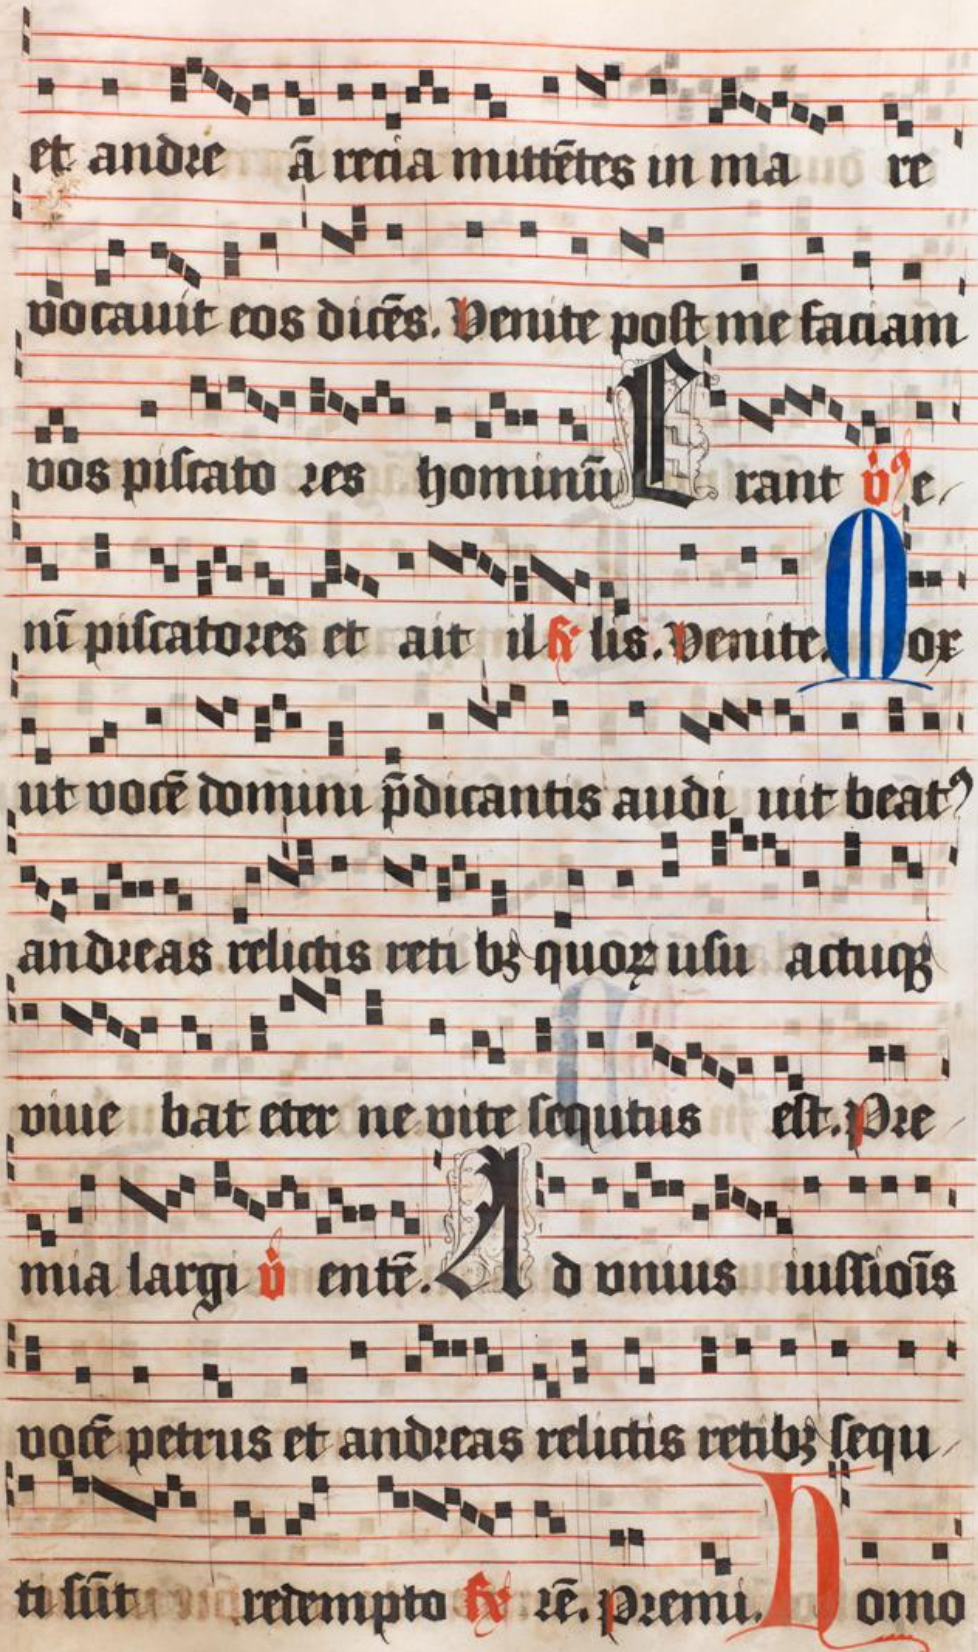 et andre ā recia mittētes in ma re
vocauit eos dicēs. Venite post me faciam
vos piscato res hominū E rant v̇ e
nī piscatores et ait il ℟ lis. Venite. Mox
ut vocē domini p̄dicantis audi uit beatꝰ
andreas relictis reti bꝫ quoꝝ usu actuqꝫ
viue bat eter ne vite secutus est. Pre
mia largi v̇ entē. Ad vnius iussiōis
vocē petrus et andreas relictis retibꝫ sequ
ti sūt redempto ℟ rē. Premi. Homo